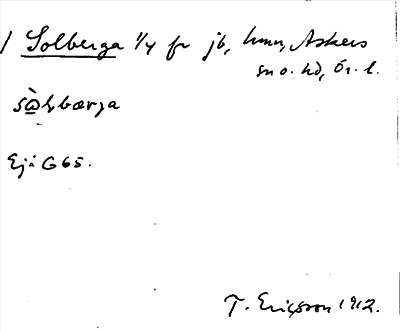 / Solberga 1/4 fr jb, hmn, Askers
sn o. hd, Ör. l.
Ej i G 65.
T. Ericsson 1912.